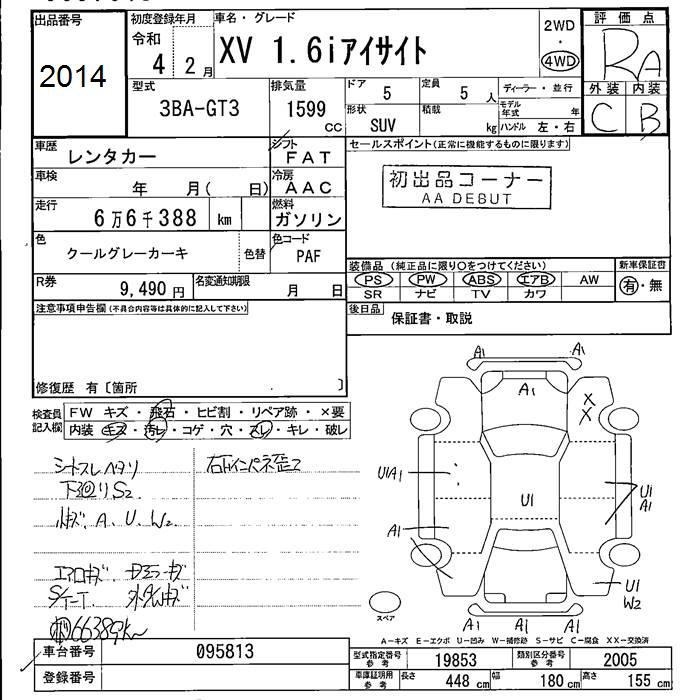 出品番号
2014
初度登録年月
令和
4 2月
車名・グレード
XV 1.6iアイサイト
2WD
・
4WD
評価点
RA
型式
3BA-GT3
排気量
1599
CC
ドア
5
定員
5 人
ディーラー・並行
形状
SUV
積載
kg
モデル年式
年
ハンドル 左・右
外装 内装
C B
車歴
レンタカー
シフト
FAT
セールスポイント(正常に機能するものに限ります)
初出品コーナー
AA DEBUT
車検
年 月( 日)
冷房
AAC
走行
6万6千388 km
燃料
ガソリン
色
クールグレーカーキ
色替
色コード
PAF
R券
9,490 円
名変通知期限
月 日
装備品 (純正品に限り○をつけてください)
新車保証書
PS PW ABS エアB AW
SR ナビ TV カワ
有・無
後日品
保証書・取説
注意事項申告欄(不具合内容等は具体的に記入して下さい)
修復歴 有〔箇所 〕
検査員
記入欄
FW キズ・飛石・ヒビ割・リペア跡・×要
内装 キズ・汚れ・コゲ・穴・スレ・キレ・破レ
シートスレヘタリ
下回りS2
A、U、W2
エアロキズ、ドアミラーキズ
66389km
A1 A1
A1
X
X
U1A1
U1
U1
A1
A1
U1
W2
A1 A1 A1
スペア
A-キズ E-エクボ U-凹み W-補修跡 S-サビ C-腐食 XX-交換済
車台番号
095813
登録番号
型式指定番号
参考
19853
類別区分番号
参考
2005
車庫証明用
参考
長さ
448 cm
幅
180 cm
高さ
155 cm